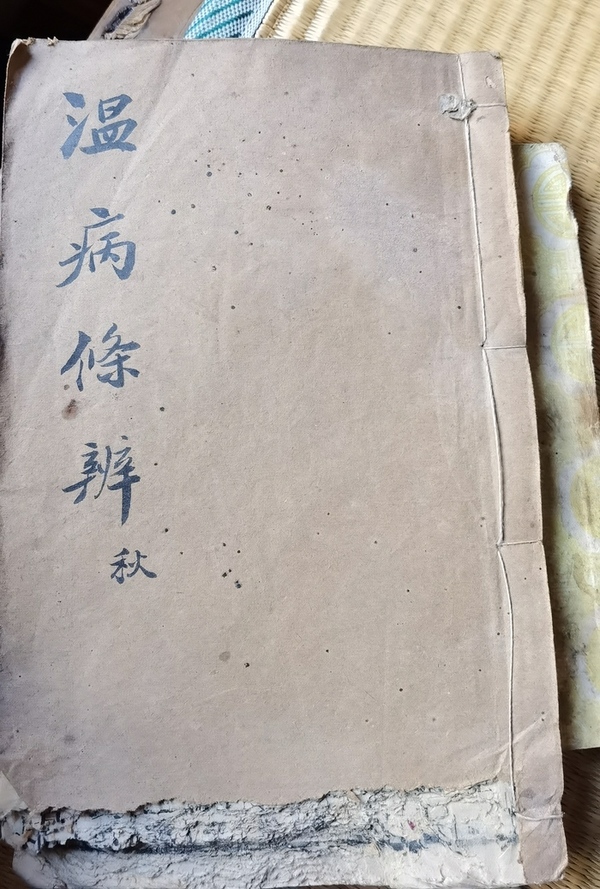 温病條辨
秋